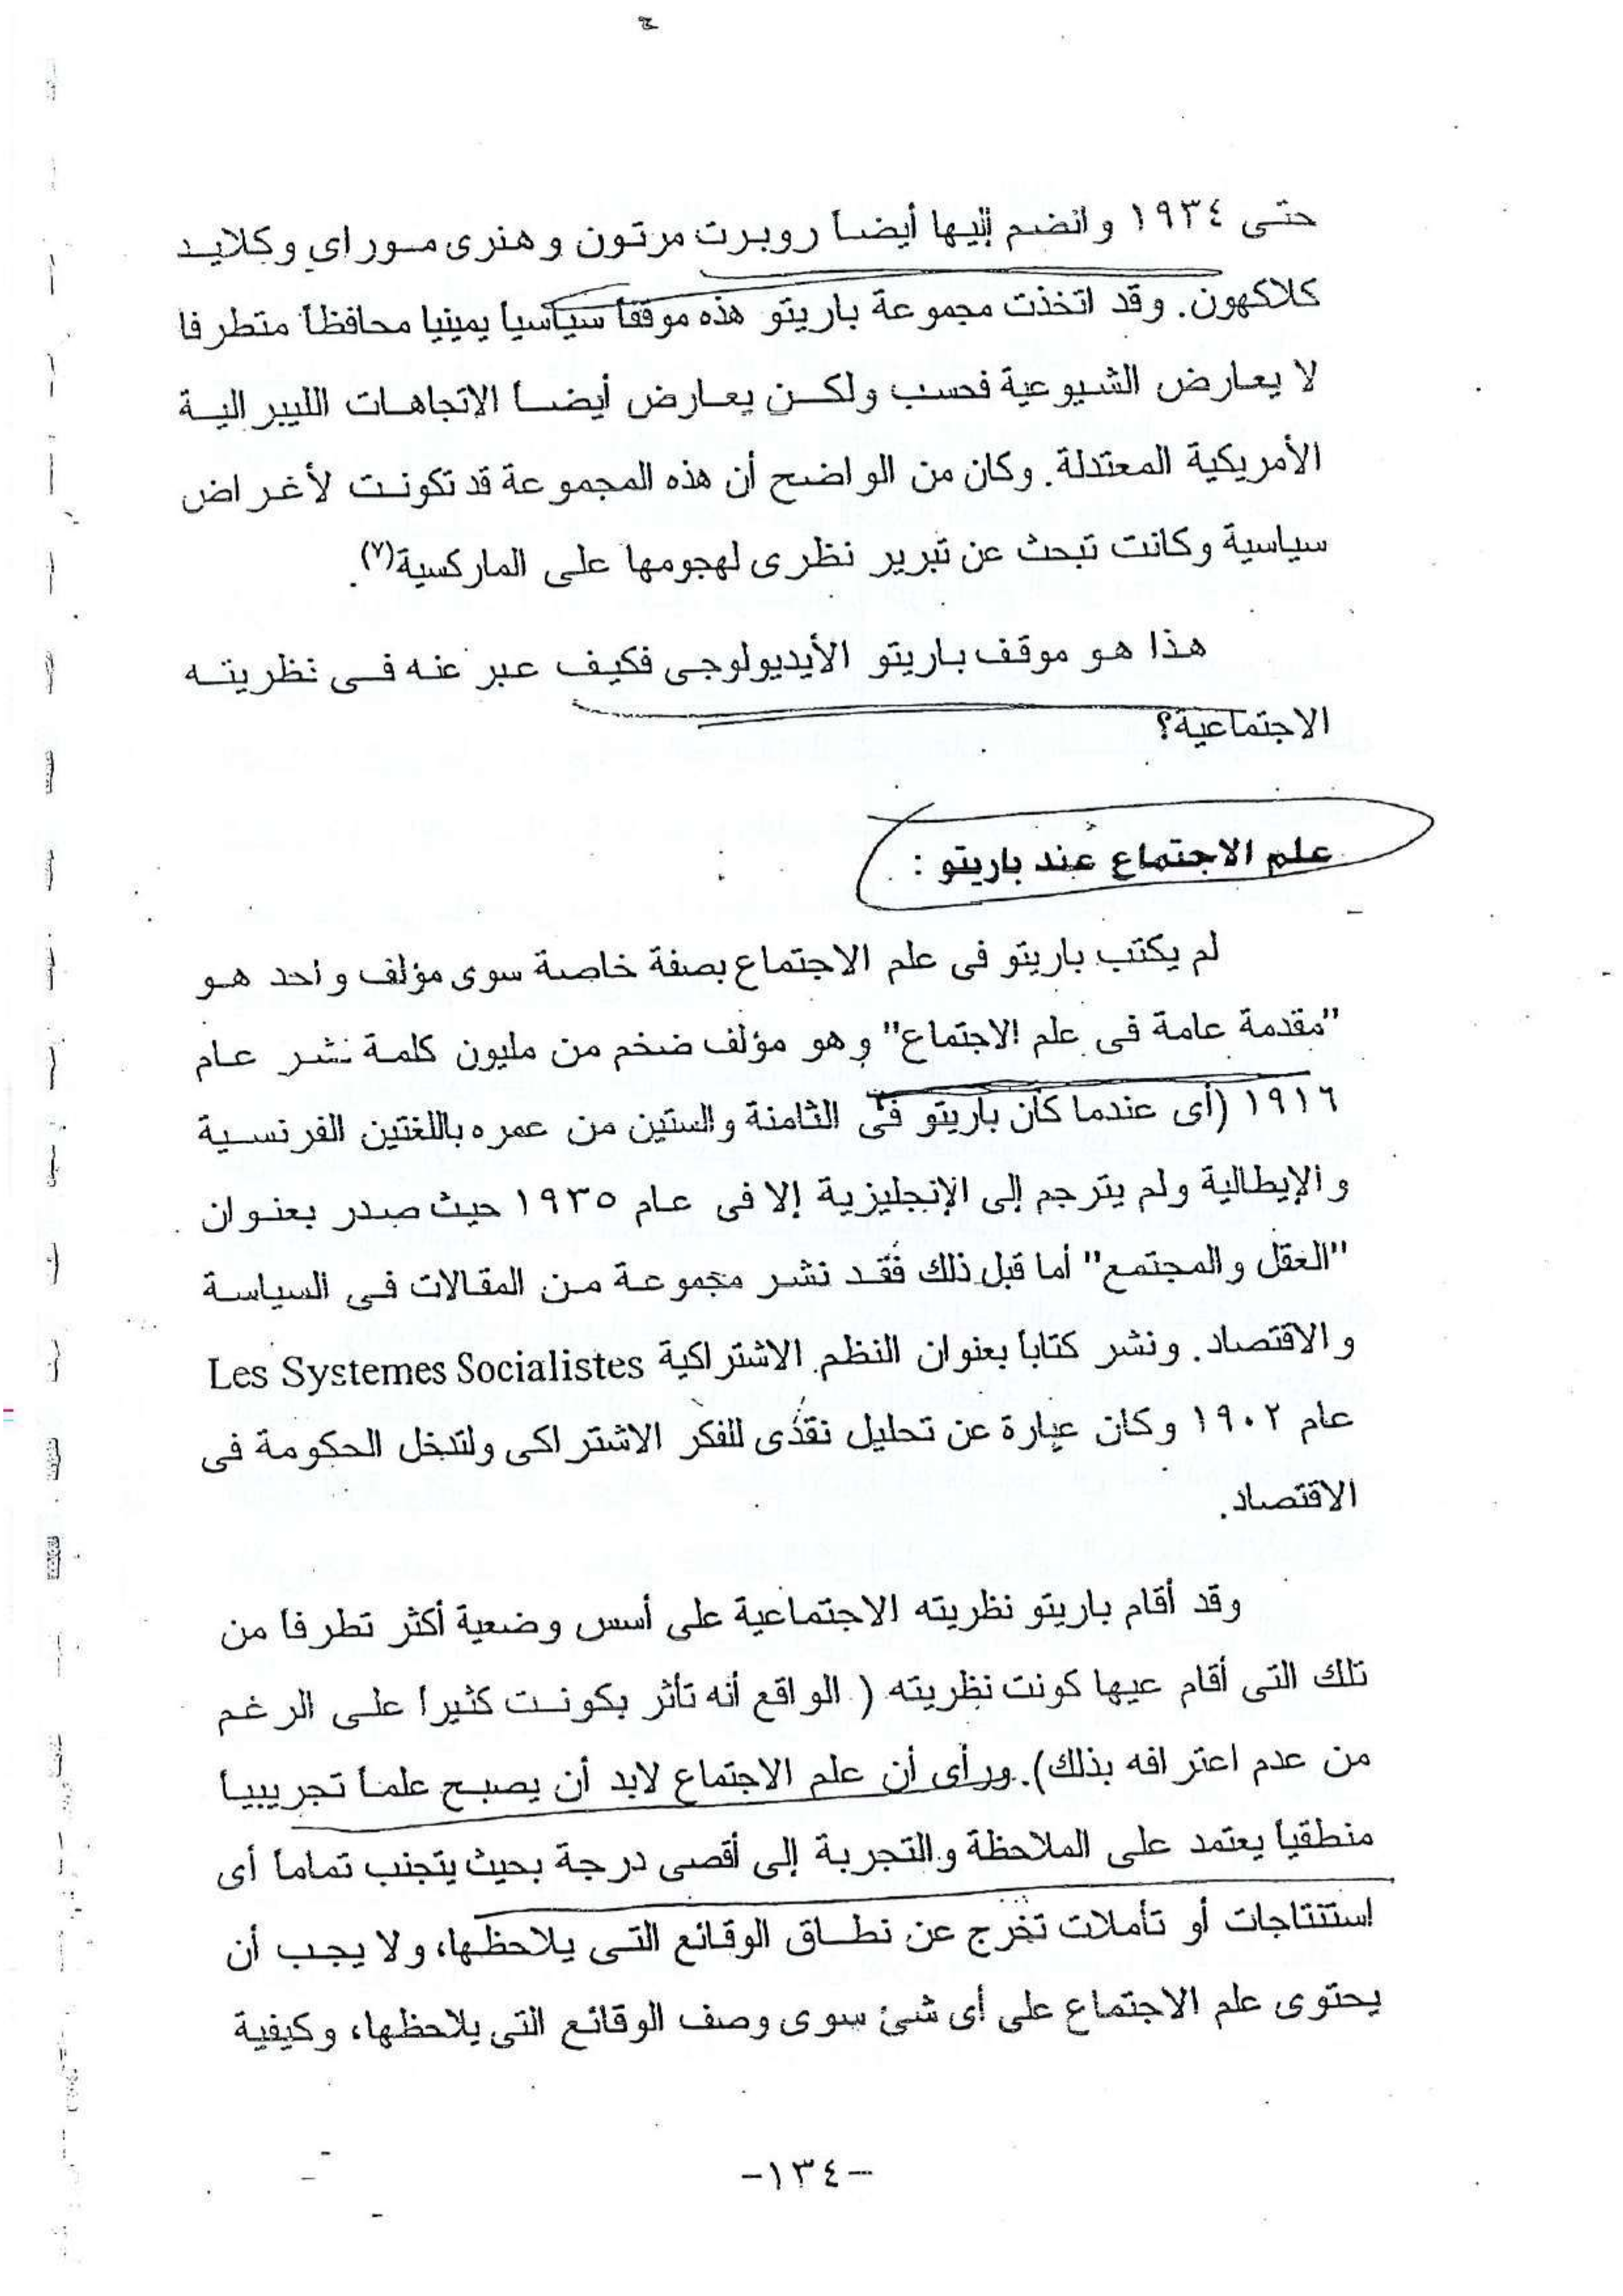 حتى ١٩٣٤ وانضم إليها أيضاً روبرت مرتون وهنرى موراي وكلايد
كلاكهون. وقد اتخذت مجموعة باريتو هذه موقفاً سياسياً يمينيا محافظاً متطرفا
لا يعارض الشيوعية فحسب ولكن يعارض أيضا الإتجاهات الليبرالية
الأمريكية المعتدلة. وكان من الواضح أن هذه المجموعة قد تكونت لأغراض
سياسية وكانت تبحث عن تبرير نظرى لهجومها على الماركسية(٧).
هذا هو موقف باريتو الأيديولوجى فكيف عبر عنه فى نظريته
الاجتماعية؟
علم الاجتماع عند باريتو :
لم يكتب باريتو فى علم الاجتماع بصفة خاصة سوى مؤلف واحد هو
"مقدمة عامة فى علم الاجتماع" وهو مؤلف ضخم من مليون كلمة نشر عام
١٩١٦ (أى عندما كان باريتو فى الثامنة والستين من عمره باللغتين الفرنسية
والإيطالية ولم يترجم إلى الإنجليزية إلا فى عام ١٩٣٥ حيث صدر بعنوان
"العقل والمجتمع" أما قبل ذلك فقد نشر مجموعة من المقالات فى السياسة
والاقتصاد. ونشر كتاباً بعنوان النظم الاشتراكية Les Systemes Socialistes
عام ١٩٠٢ وكان عبارة عن تحليل نقدى للفكر الاشتراكى ولتدخل الحكومة فى
الاقتصاد.
وقد أقام باريتو نظريته الاجتماعية على أسس وضعية أكثر تطرفا من
تلك التى أقام عيها كونت نظريته ( الواقع أنه تأثر بكونت كثيراً على الرغم
من عدم اعترافه بذلك). ورأى أن علم الاجتماع لابد أن يصبح علماً تجريبياً
منطقياً يعتمد على الملاحظة والتجربة إلى أقصى درجة بحيث يتجنب تماماً أى
استنتاجات أو تأملات تخرج عن نطاق الوقائع التى يلاحظها، ولا يجب أن
يحتوى علم الاجتماع على أى شئ سوى وصف الوقائع التى يلاحظها، وكيفية
-١٣٤-